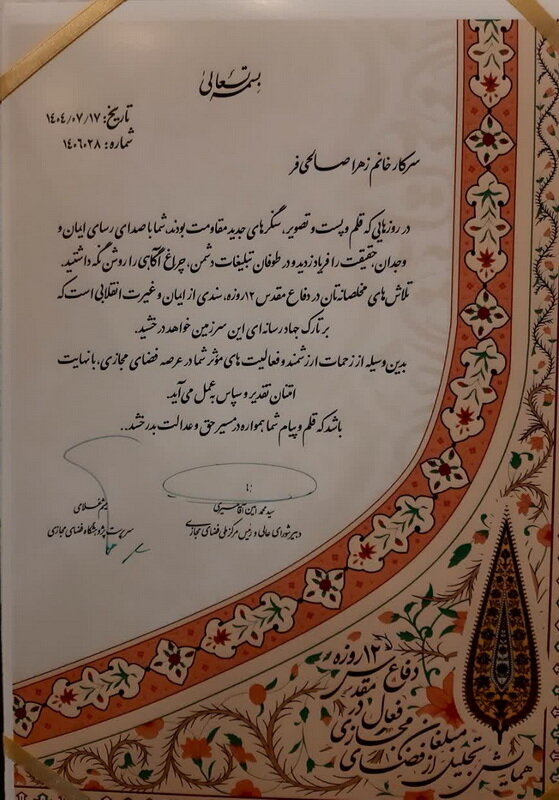 بسمه تعالی
تاریخ: ۱۴۰۴/۰۷/۱۷
شماره: ۱۴۰۶۰۲۸
سرکار خانم زهرا صالحی فر
در روزهایی که قلم و پست و تصویر، سنگرهای جدید مقاومت بودند، شما با صدای رسای ایمان و
وجدان، حقیقت را فریاد زدید و در طوفان تبلیغات دشمن، چراغ آگاهی را روشن نگه داشتید.
تلاش های مخلصانه تان در دفاع مقدس ۱۲ روزه، سندی از ایمان و غیرت انقلابی است که
بر تارک جهاد رسانه ای این سرزمین خواهد درخشید.
بدین وسیله از زحمات ارزشمند و فعالیت های مؤثر شما در عرصه فضای مجازی، با نهایت
امتنان تقدیر و سپاس به عمل می آید.
باشد که قلم و پیام شما همواره در مسیر حق و عدالت بدرخشد..
سید محمد امین آقامیری
دبیر شورای عالی و رئیس مرکز ملی فضای مجازی
میثم غلامی
سرپرست پژوهشگاه فضای مجازی
همایش تجلیل از مبلغان
فضای مجازی
فعال در
دفاع مقدس
۱۲ روزه